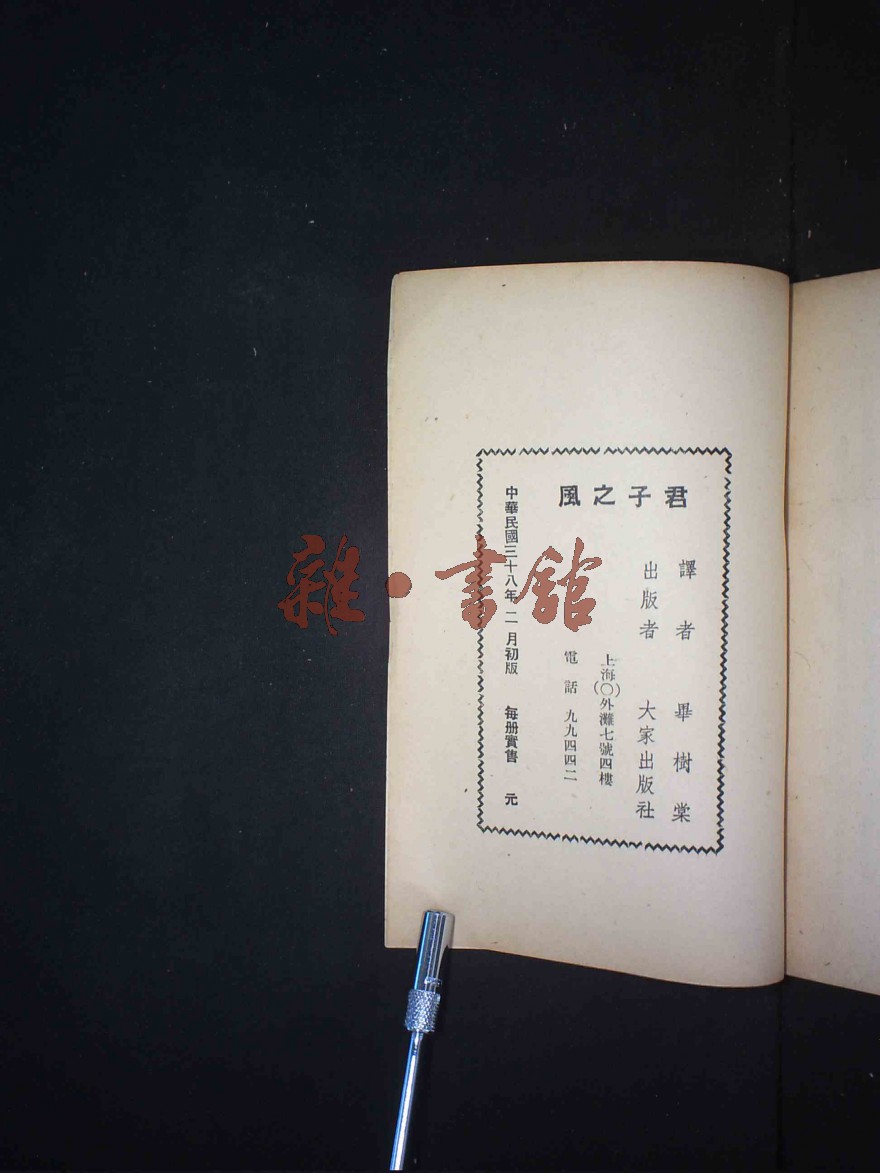 君子之風
譯者 畢樹棠
出版者 大家出版社
上海(〇)外灘七號四樓
電話 九九四四二
中華民國三十八年二月初版 每册實售 元
雜·書館